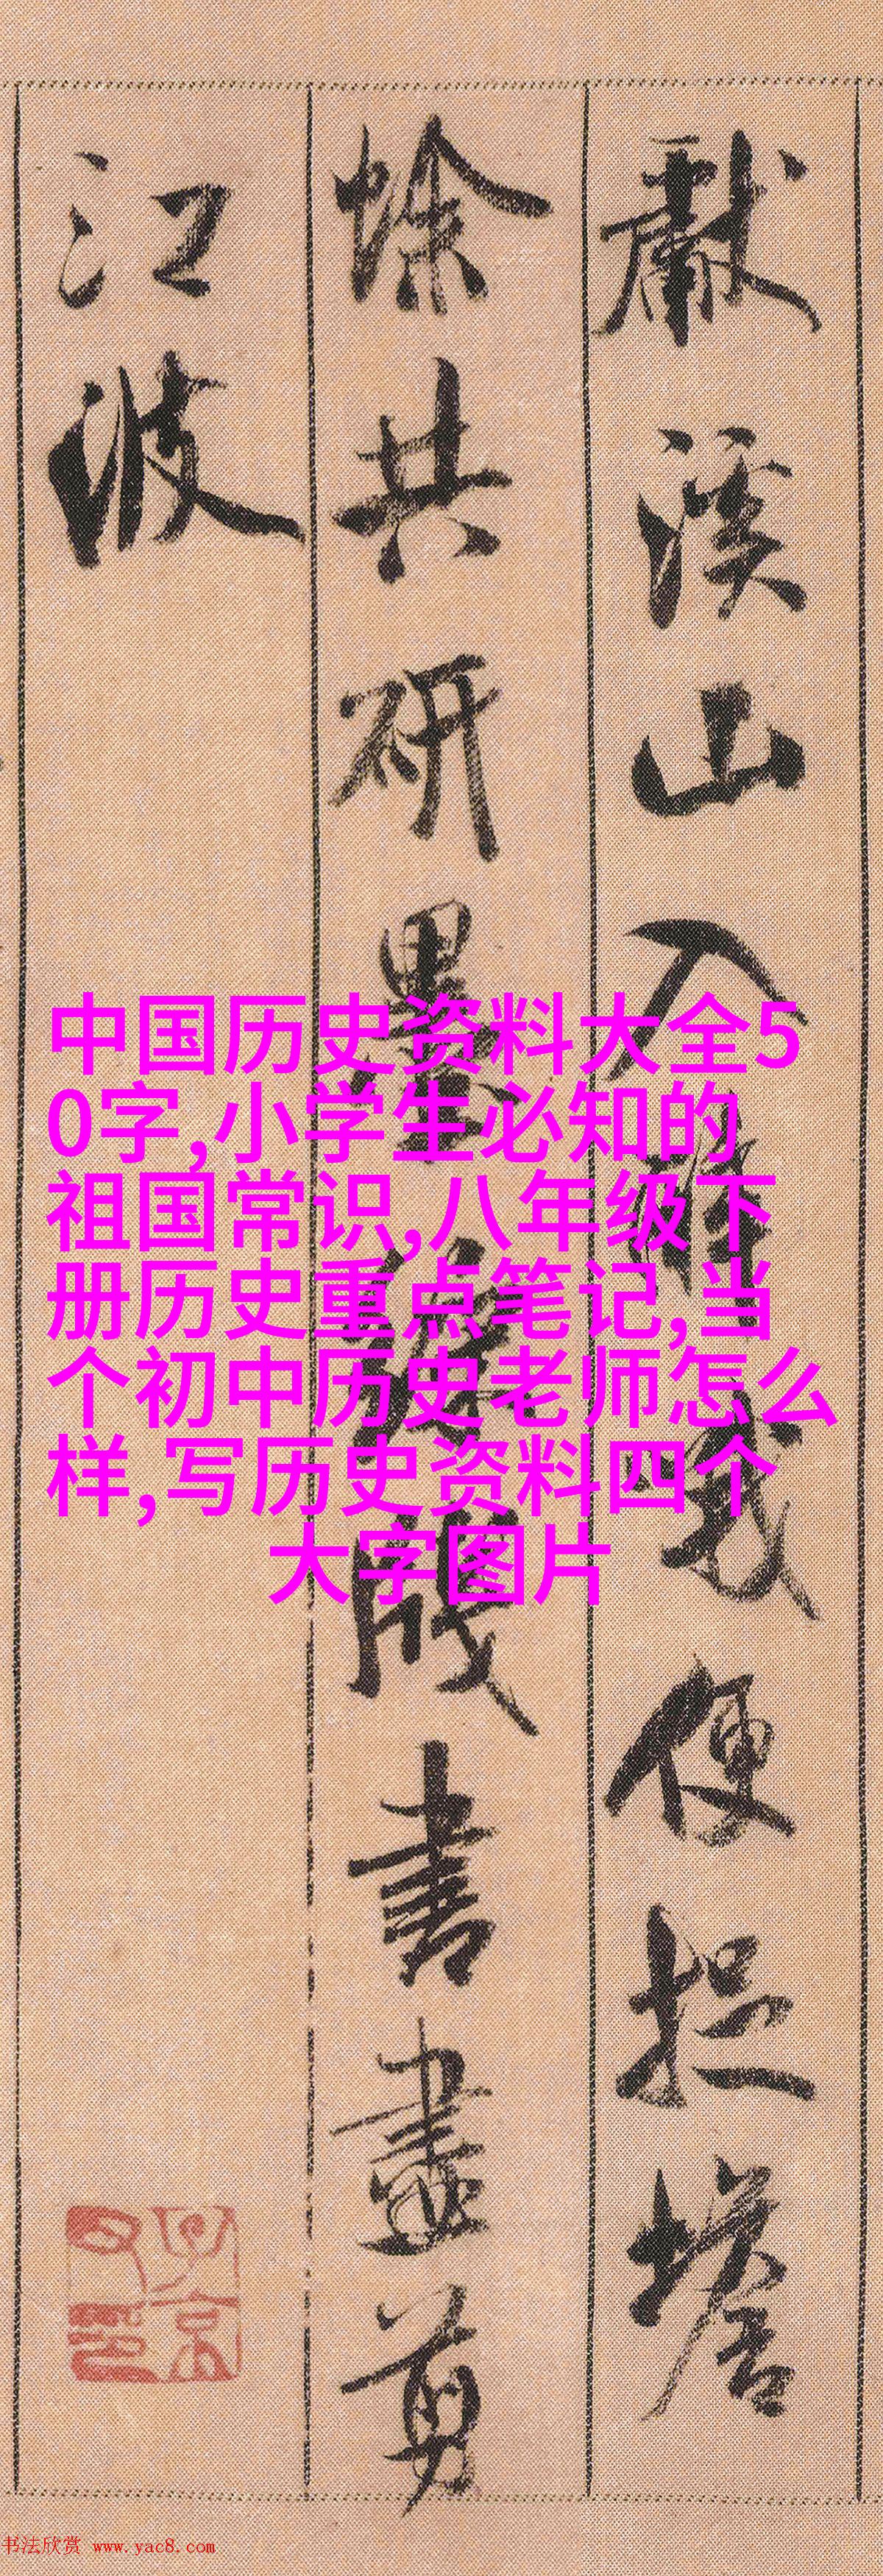 献溪山入醉我便捉塘
蜍共研墨作牋書畫剪
江波
中国历史资料大全5
0字,小学生必知的
祖国常识,八年级下
册历史重点笔记,当
个初中历史老师怎么
样,写历史资料四个
大字图片
书法欣赏 www.yac8.com